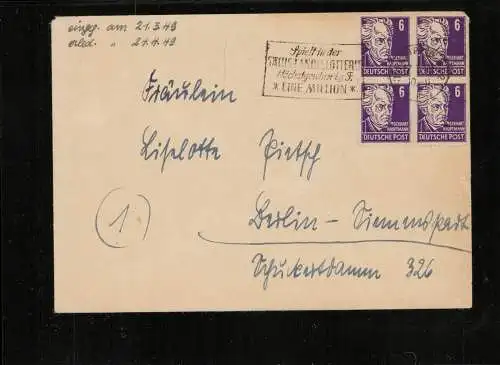 eingg. am 21.3.49
erled. " 21.4.49
Spielt in der
SÄCHS. LANDESLOTTERIE
Höchstgewinn i.g.F.
* EINE MILLION *
6 6
GERHART HAUPTMANN GERHART HAUPTMANN
DEUTSCHE POST DEUTSCHE POST
6 6
GERHART HAUPTMANN GERHART HAUPTMANN
DEUTSCHE POST DEUTSCHE POST
Fräulein
Liselotte Pietsch
(1)
Berlin - Siemensstadt
Schuckertdamm 326